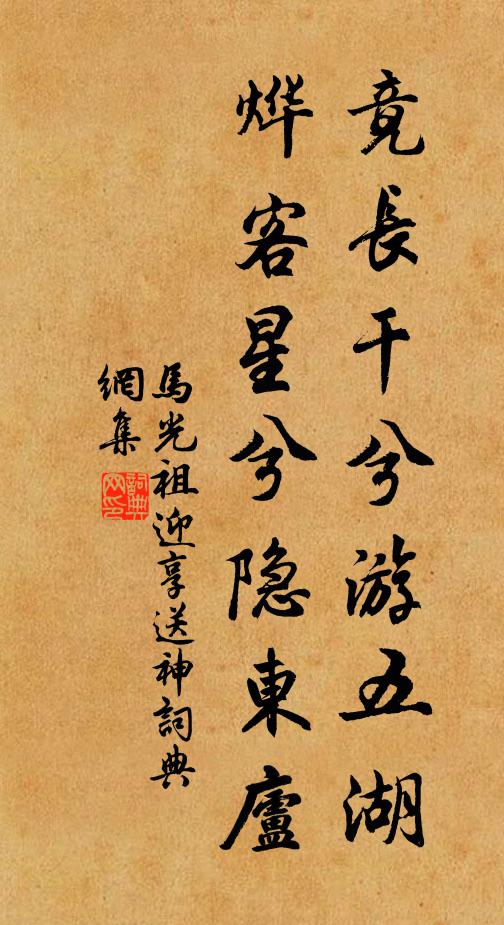 竟長干兮游五湖
烨客星兮隐東廬
馬光祖迎享送神詞典
網集
詞典
网印